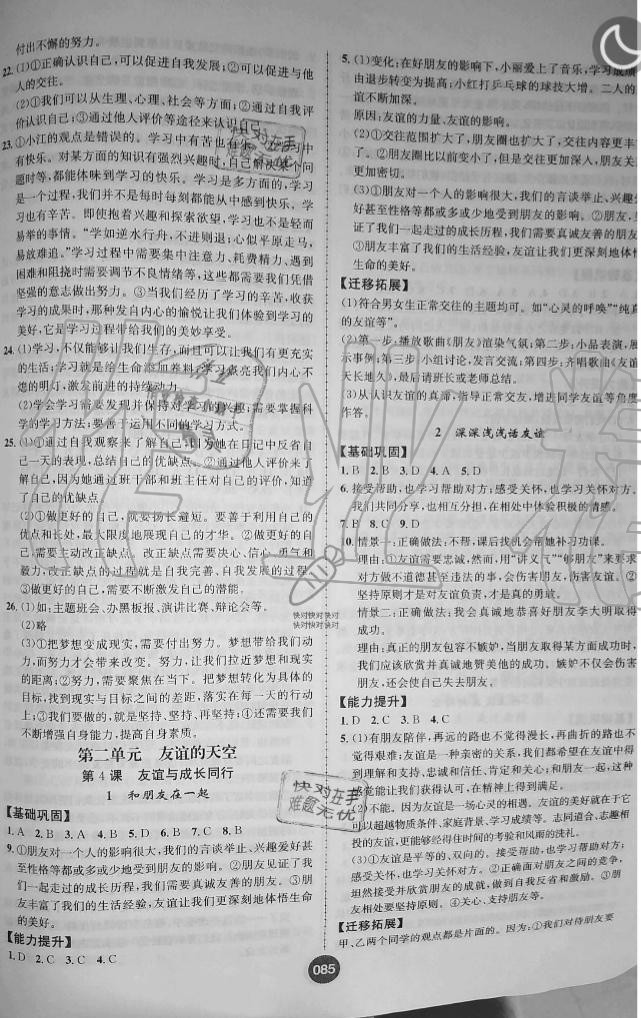 付出不懈的努力。
22. (1)①正确认识自己,可以促进自我发展;②可以促进与他
人的交往。
(2)①我们可以从生理、心理、社会等方面;②通过自我评
价认识自己;③通过他人评价等途径来认识自己。
23. ①小江的观点是错误的。学习中有苦也有乐。②学习中
有快乐。对某方面的知识有强烈兴趣时,自己解决某个问
题时等,都能体味到学习的快乐。学习是多方面的,学习
是一个过程,我们并不是每时每刻都能从中感到快乐。学
习也有辛苦。即使抱着兴趣和探索欲望,学习也不是轻而
易举的事情。“学如逆水行舟,不进则退;心似平原走马,
易放难追。”学习过程中需要集中注意力、耗费精力、遇到
困难和阻挠时需要调节不良情绪等,这些都需要我们凭借
坚强的意志做出努力。③当我们经历了学习的辛苦,收获
学习的成果时,那种发自内心的愉悦让我们体验到学习的
美好,它是学习过程带给我们的美妙享受。
24. (1)学习,不仅能够让我们生存,而且可以让我们有更充实
的生活;学习就是给生命添加养料;学习点亮我们内心不
熄的明灯,激发前进的持续动力。
(2)学会学习需要发现并保持对学习的兴趣;需要掌握科
学的学习方法;要善于运用不同的学习方式。
25. (1)①通过自我观察来了解自己,因为她在日记中反省自
己一天的表现,总结自己的优缺点。②通过他人评价来了
解自己,因为她通过班干部和班主任对自己的评价,知道
了自己的优缺点。
(2)①做更好的自己,就要扬长避短。要善于利用自己的
优点和长处,最大限度地展现自己的才华。②做更好的自
己,需要主动改正缺点。改正缺点需要决心、信心、勇气和
毅力。③做更好的自己,需要不断激发自己的潜能。
26. (1)如:主题班会、办黑板报、演讲比赛、辩论会等。
(2)略
(3)①把梦想变成现实,需要付出努力。梦想带给我们动
力,而努力才会带来改变。努力,让我们拉近梦想和现实
的距离;②努力,需要聚焦在当下。把梦想转化为具体的
目标,找到现实与目标之间的差距,落实在每一天的行动
中;③我们要做的,就是坚持、坚持、再坚持;④还需要我们
不断增强自身能力,提高自身素质。
第二单元 友谊的天空
第 4 课 友谊与成长同行
1 和朋友在一起
【基础巩固】
1. A 2. B 3. A 4. B 5. D 6. B 7. D 8. C
9. ①朋友对一个人的影响很大,我们的言谈举止、兴趣爱好甚
至性格等都或多或少地受到朋友的影响。②朋友见证了我
们一起走过的成长历程,我们需要真诚友善的朋友。③朋
友丰富了我们的生活经验,友谊让我们更深刻地体悟生命
的美好。
【能力提升】
1. D 2. C 3. C 4. C
5. (1)变化:在好朋友的影响下,小丽爱上了音乐,学习成绩
由退步转变为提高;小红打乒乓球的球技大增。二人的
谊不断加深。
原因:友谊的力量、友谊的影响。
(2)①交往范围扩大了,朋友圈也扩大了;②交往更深入
朋友圈比以前变小了,但是交往更加深入,和朋友关
更加密切。
(3)①朋友对一个人的影响很大,我们的言谈举止、兴
好甚至性格等都或多或少地受到朋友的影响。②朋友
证了我们一起走过的成长历程,我们需要真诚友善的朋友
③朋友丰富了我们的生活经验,友谊让我们更深刻地体
生命的美好。
【迁移拓展】
(1)符合男女生正常交往的主题均可。如“心灵的呼唤”“纯真
的友谊等”。
(2)第一步:播放歌曲《朋友》渲染气氛;第二步:小品表演,展
示事例;第三步:小组讨论,发言交流;第四步:齐唱歌曲《友谊
天长地久》,最后请班长或老师总结。
(3)从认识友谊的真谛、指导正常交友,增进同学友谊等角度
作答。
2 深深浅浅话友谊
【基础巩固】
1. B 2. B 3. D 4. A 5. D
6. 接受帮助,也学习帮助对方;感受关怀,也学习关怀对方。
我们共同分享,也相互分担,在相处中体验积极的情感。
7. B 8. C 9. D
10. 情景一:正确做法:不帮,课后找机会帮她补习功课。
理由:友谊需要关怀,然而,用“讲义气”“够朋友”来要求
对方做不道德甚至违法的事,会伤害友谊,也会伤害自己。
坚持原则才是对友谊负责,也是友谊的真的勇敢。
情景二:正确做法:我会真诚地恭喜好朋友李大明取得
成功。
理由:真正的朋友包容不嫉妒。当朋友取得某方面成功时,
我们应该欣赏并真诚地赞美他的成功。嫉妒不仅会伤害
友谊,也会使自己失去朋友。
【能力提升】
1. D 2. C 3. D 4. C
5. (1)有朋友陪伴,再远的路也不觉得漫长,再曲折的路也不
觉得艰辛。友谊是一种亲密的关系。朋友让我们感受到温
暖、支持和力量,让我们感受到生活的美好。接受朋友的善
意、忠诚、信任和共同志趣,在精神上得到满足。
(2)不能。因为友谊是一种心灵的相遇。美好的友谊,可
以超越物质条件、家庭背景、学习成绩等。志同道合、志趣相
投的友谊,更能够经得住时间的考验和风雨的洗礼。
(3)①友谊是平等的、双向的。接受帮助,也学习帮助对方;
感受关怀,也学习关怀对方。②正确面对朋友之间的竞争,
坦然接受并欣赏朋友的成就,做到自我反省和激励。③对
朋友相处要坚持原则。④支持朋友、关心朋友。
【迁移拓展】
甲、乙两个同学的观点都是片面的。因为:①友谊需要
085
快对在手
难题无忧
快对快对快对
快对快对快对
快对在手
难题无忧